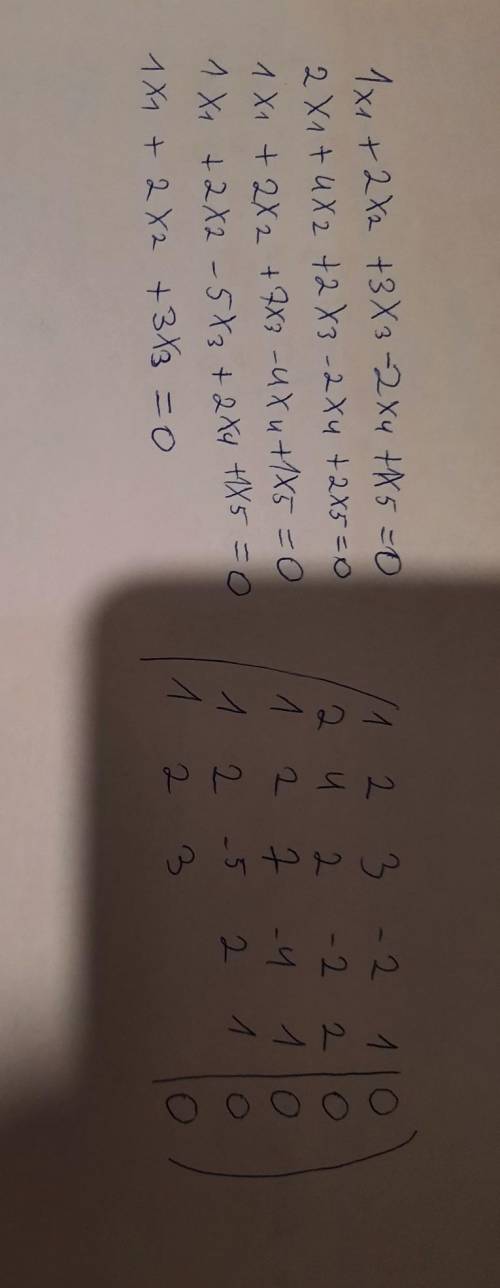 1x1 + 2x2 + 3x3 - 2x4 + 1x5 = 0
2x1 + 4x2 + 2x3 - 2x4 + 2x5 = 0
1x1 + 2x2 + 7x3 - 4x4 + 1x5 = 0
1x1 + 2x2 - 5x3 + 2x4 + 1x5 = 0
1x1 + 2x2 + 3x3 = 0
1 2 3 -2 1 | 0
2 4 2 -2 2 | 0
1 2 7 -4 1 | 0
1 2 -5 2 1 | 0
1 2 3 | 0